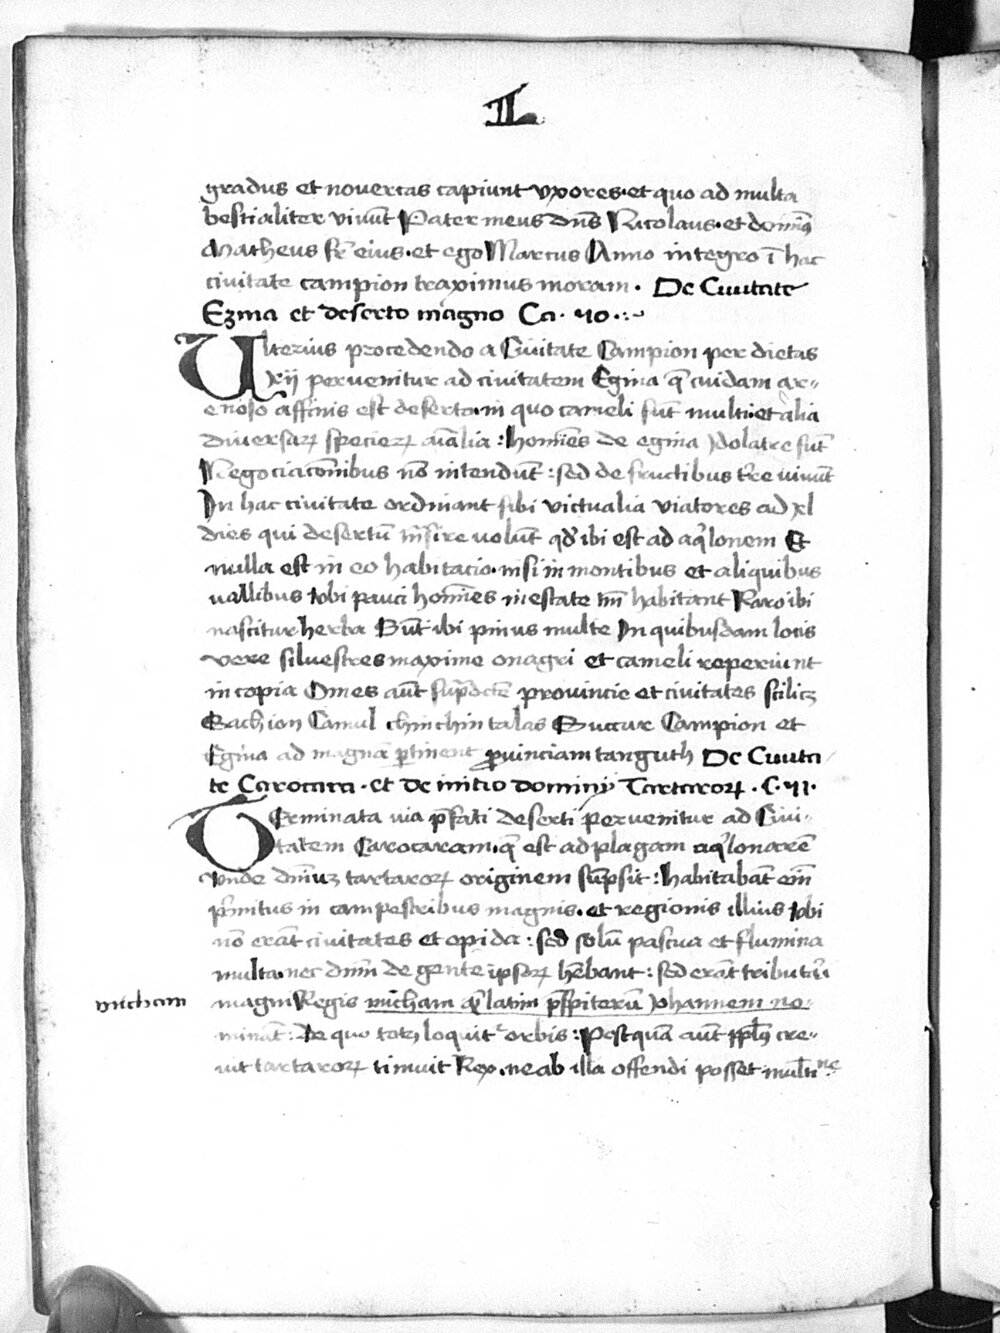 II
gradus et novercas capiunt vxores. et quo ad multa
bestialiter viuūt Pater meus dn̄s Nicolaus. et domin9
Matheus fr̄ eius. et ego Marcus Anno integro ī hac
ciuitate campion traximus moram. De Ciuitate
Ezina et deserto magno Ca. 40.
Ulterius procedendo a Ciuitate Campion per dietas
xij peruenitur ad ciuitatem Egina q̄ cuidam ar=
enoso affinis est deserto. in quo cameli sūt multi. et alia
diuersaꝝ specieꝝ aīalia : homīes de egina ydolatre sūt
Negociacōnibus nō intendūt : sed de fructibus tr̄e viuūt
In hac ciuitate ordinant sibi victualia viatores ad xl
dies qui desertū trāsire volūt qđ ibi est ad aq̇lonem Et
nulla est in eo habitacio. nisi in montibus et aliquibus
vallibus vbi pauci homīes in estate tm̄ habitant Raro ibi
nascitur herba Sūt ibi pinus multe In quibusdam locis
vero siluestres maxime onagri et cameli reperiunt
in copia Omes aūt sup̄dcte prouincie et ciuitates scilicꝫ
Sachion Camul chinchin talas Succur Campion et
Egina ad magnā ꝑtinent ꝓuinciam tanguth De Ciuita
te Carocara. et de initio dominij Tartaroꝝ. C. 41.
Terminata via p̄fati deserti peruenitur ad Ciui=
tatem Carocaram. q̄ est ad plagam aq̇lonarē
Vnde dn̄iuꝫ tartaroꝝ originem sūpsit : habitabāt em̄
p̄mitus in campestribus magnis. et regionis illius vbi
nō erāt ciuitates et opida : sed solū pascua et flumina
multa. nec dnm̄ de gente ipsoꝝ hēbant : sed erāt tributarii
magni Regis vncham q̄ latini p̄sbiterū Johannem no=
minat : de quo totꝰ loquit orbis : Postquā aūt ppl̄s cre=
uit tartaroꝝ timuit Rex. ne ab illa offendi posset multine
vncham